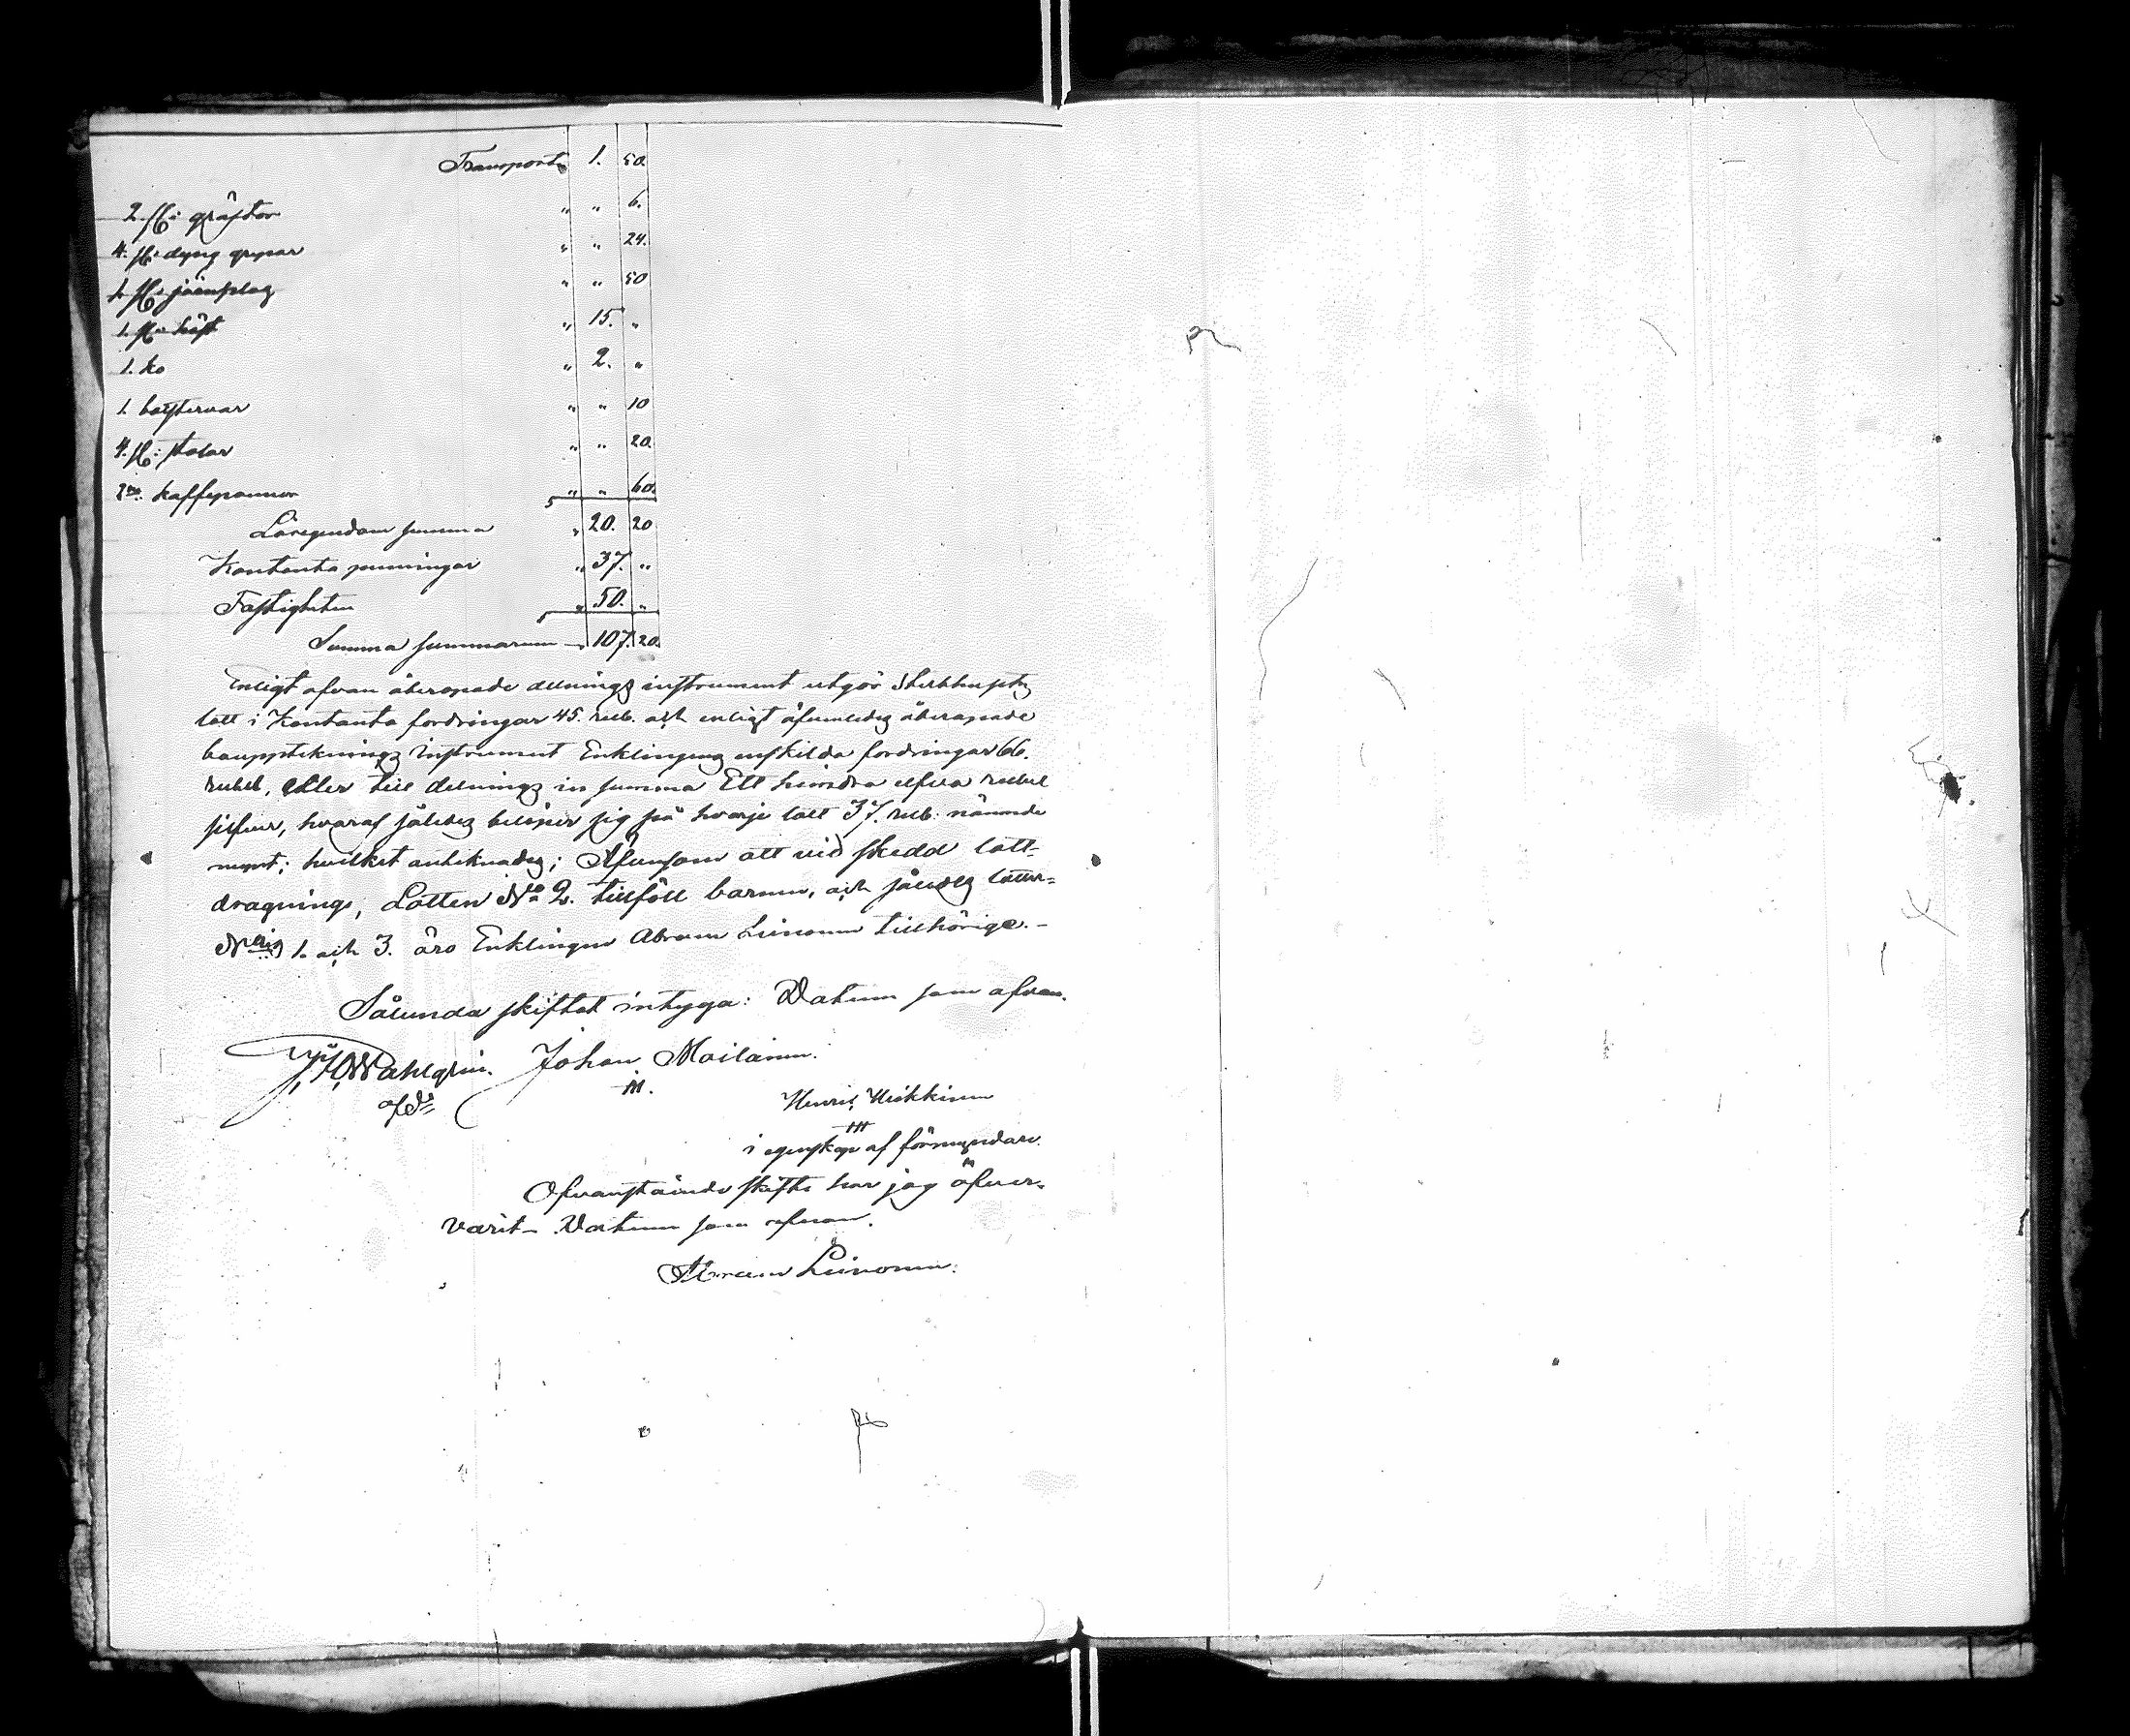 Transport 1. 50.
2. st: gräftor " " 6.
4. st: dyng grepar " " 24.
1. st: järnslag " " 50
1. st: häst " 15. "
1. ko " 2. "
1. bolstervar " " 10
4. st: stolar " " 20.
2ne kaffepannor " " 60.
Lösegendom summa " 20. 20
Kontanta penningar " 37. "
Fastigheten " 50. "
Summa summarum " 107. 20.
Enligt ofvan åberopade delnings instrument utgör Sterbhusets
lott i Kontanta fordringar 45. rub. och enligt äfvenledes åberopade
bouppteknings instrument Enklingens enskilda fordringar 66.
rubel, eller till delnings in summa Ett hundra elfva rubel
silfver, hvaraf således belöper sig på hvarje lott 37. rub: nämnde
mynt; hvilket anteknades; Äfvensom att vid skedd lott-
dragnings, Lotten No 2. tillföll barnen, och således lotter-
Neris 1. och 3. äro Enklingen Abram Leinonen tillhörige.-
Sålunda skiftat intyga: Datum som ofvan.
Wahlgrén. Johan Moilanen.
Henric Heikkinen
i egenskap af förmyndare.
Ofvanstående skifte har jag öfver-
varit- Datum som ofvan.
Abram Leinonen.